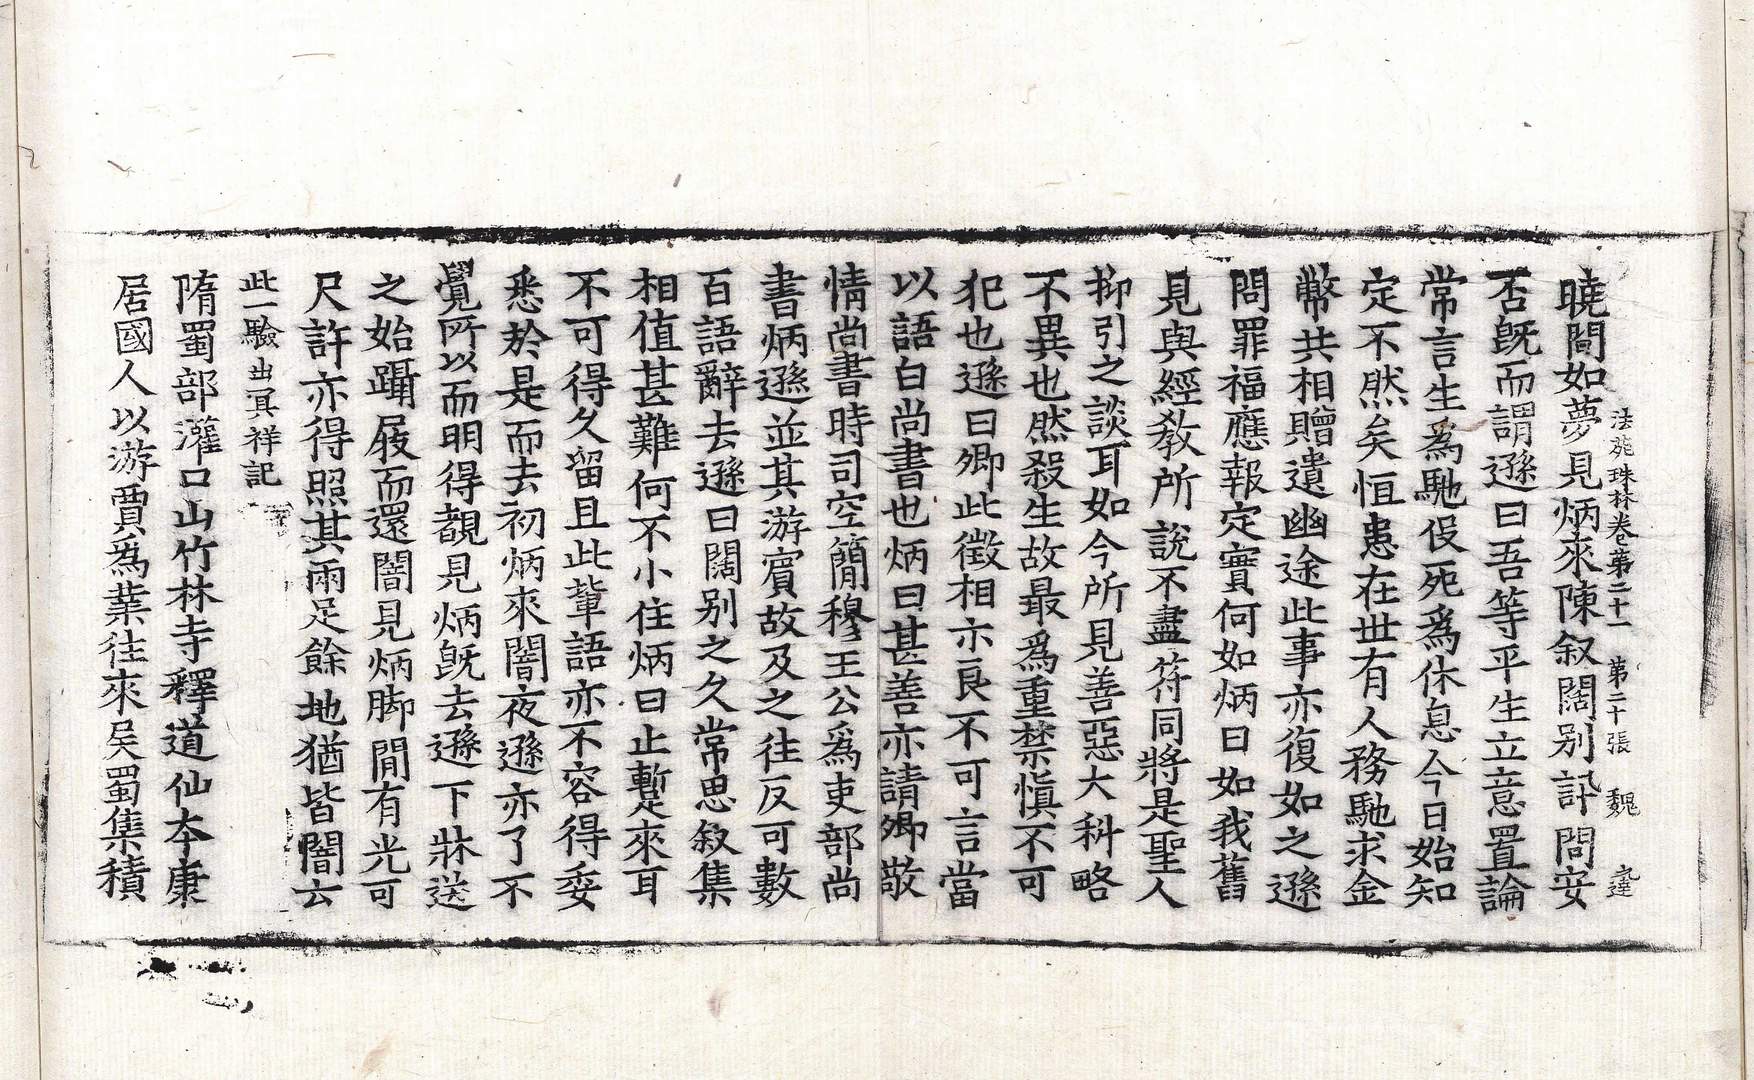 法苑珠林卷第二十一 第二十張 魏
曉間如夢見炳來陳叙闊別訊問安
否旣而謂遜曰吾等平生立意置論
常言生爲馳伇死爲休息今日始知
定不然矣恒患在丗有人務馳求金
幣共相贈遺幽途此事亦復如之遜
問罪福應報定實何如炳曰如我舊
見與經敎所說不盡符同將是聖人
抑引之談耳如今所見善惡大科略
不異也然殺生故最爲重禁愼不可
犯也遜曰卿此徵相亦良不可言當
以語白尚書也炳曰甚善亦請卿敬
情尚書時司空簡穆王公爲吏部尚
書炳遜並其游賓故及之往反可數
百語辭去遜曰闊別之久常思叙集
相值甚難何不小住炳曰止蹔來耳
不可得久留且此軰語亦不容得委
悉於是而去初炳來闇夜遜亦了不
覺所以而明得覩見炳旣去遜下牀送
之始躡屐而還闇見炳脚間有光可
尺許亦得照其兩足餘地猶皆闇云
此一驗出冥祥記
隋蜀部灌口山竹林寺釋道仙本康
居國人以游賈爲業往來吳蜀集積